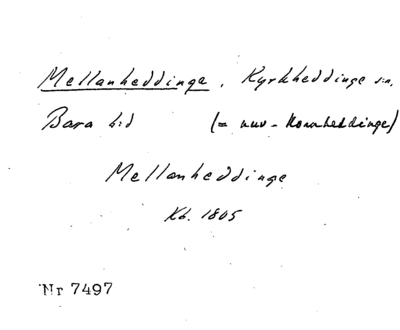 Mellanheddinge, Kyrkheddinge sn,
Bara hd (= nuv. Kornheddinge)
Mellanheddinge
Kb. 1805
Nr 7497